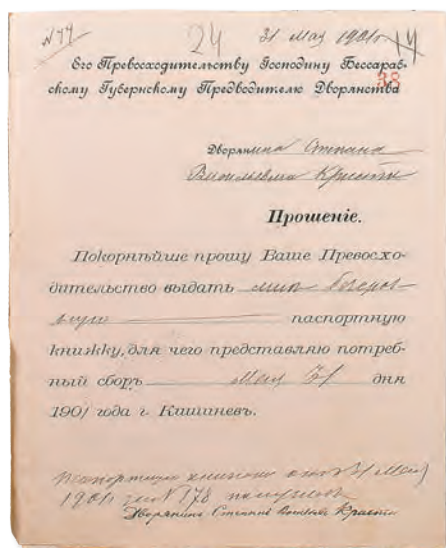 N 77 24 31 Мая 1901 г 14
Его Превосходительству Господину Бессараб-
скому Губернскому Предводителю Дворянства
38
Дворянина Степана
Васильевича Кристи
Прошеніе.
Покорнѣйше прошу Ваше Превосхо-
дительство выдать мнѣ безсроч-
ную паспортную
книжку, для чего представляю потреб-
ный сборъ Мая 31 дня
1901 года г. Кишиневъ.
паспортную книжку отъ 31 Мая
1901 г за N 178 получилъ
Дворянинъ Степанъ Васильев Кристи